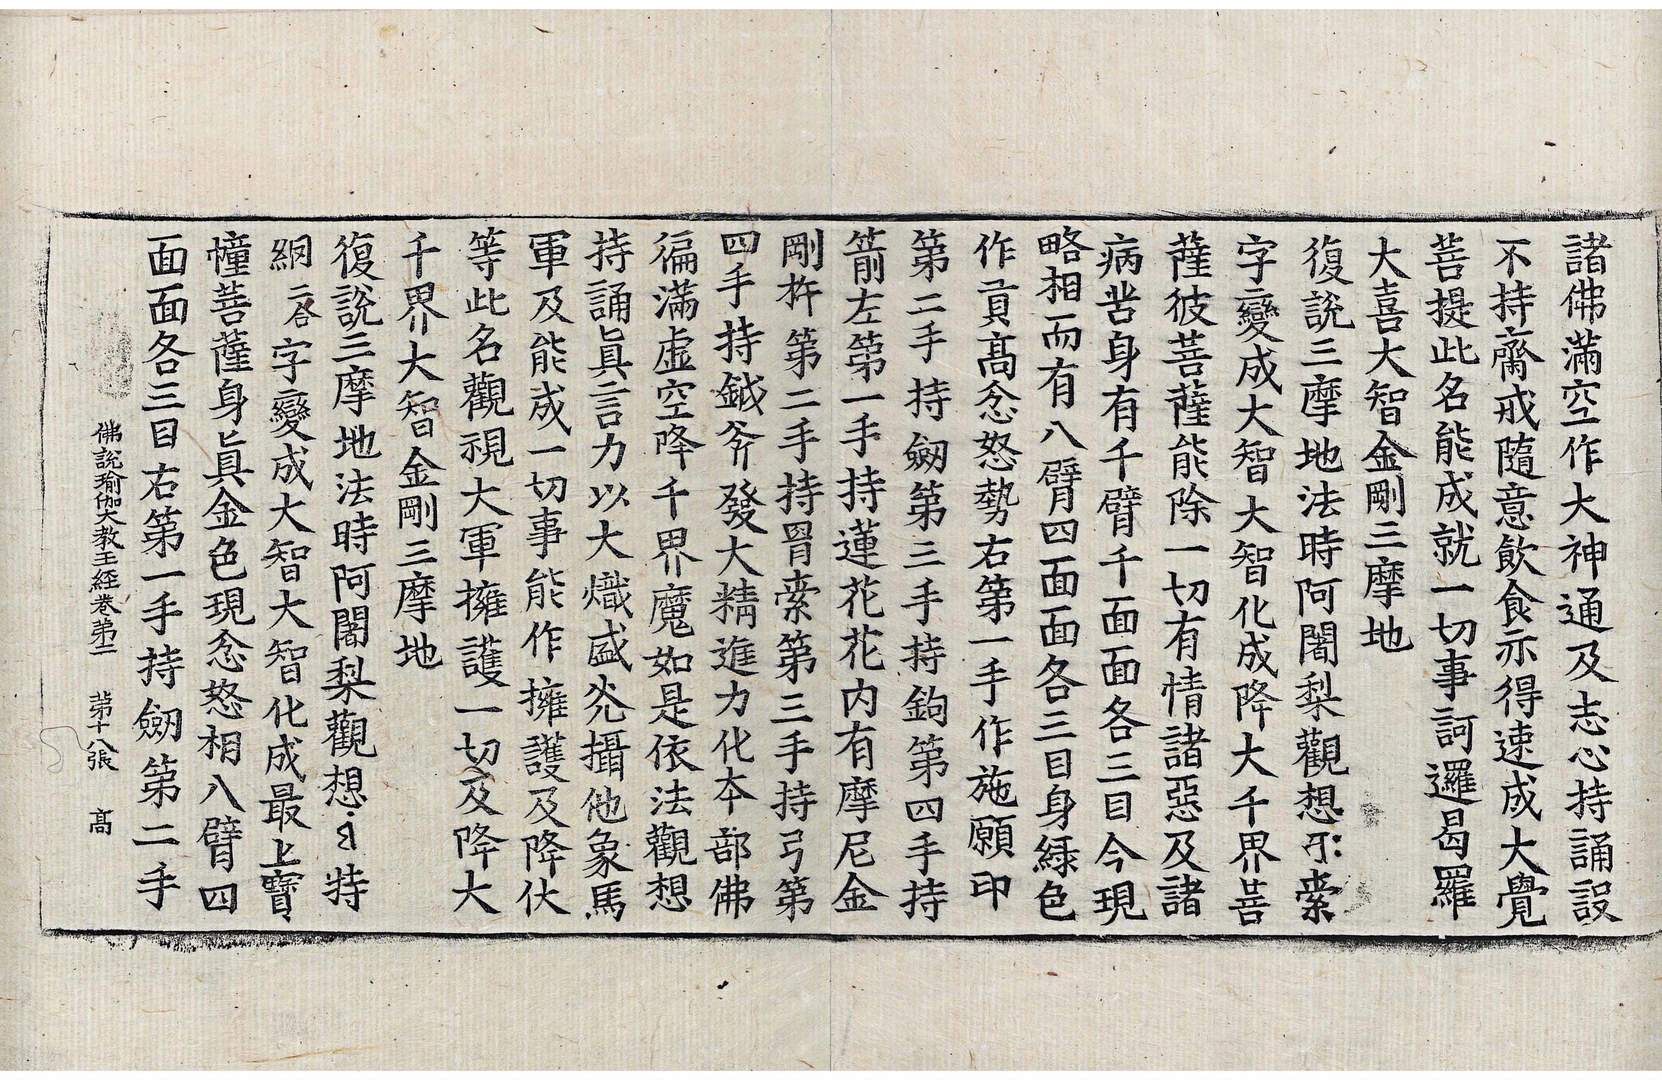 諸佛滿空作大神通及志心持誦設
不持齋戒隨意飲食示得速成大覺
菩提此名能成就一切事訶邏曷羅
大喜大智金剛三摩地
復說三摩地法時阿闍梨觀想索
字變成大智大智化成降大千界菩
薩彼菩薩能除一切有情諸惡及諸
病苦身有千臂千面面各三目今現
略相而有八臂四面面各三目身緑色
作貢髙忿怒勢右第一手作施願印
第二手持劒第三手持鉤第四手持
箭左第一手持蓮花花内有摩尼金
剛杵第二手持罥索第三手持弓第
四手持鉞斧發大精進力化本部佛
徧滿虚空降千界魔如是依法觀想
持誦眞言力以大熾盛光攝他象馬
軍及能成一切事能作擁護及降伏
等此名觀視大軍擁護一切及降大
千界大智金剛三摩地
復說三摩地法時阿闍梨觀想特
綱二合字變成大智大智化成最上寶
幢菩薩身眞金色現忿怒相八臂四
面面各三目右第一手持劒第二手
佛說瑜伽大教王經卷第二 第十八張 髙